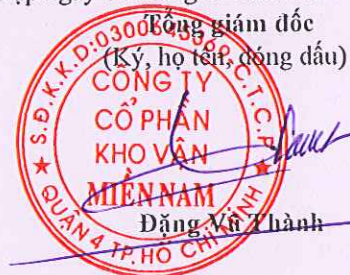 Tổng giám đốc
(Ký, họ tên, đóng dấu)
S.Đ.K.K.D:0300 C.T.C.P
CÔNG TY
CỔ PHẦN
KHO VẬN
MIỀN NAM
QUẬN 4 TP. HỒ CHÍ MINH
Đặng Vũ Thành